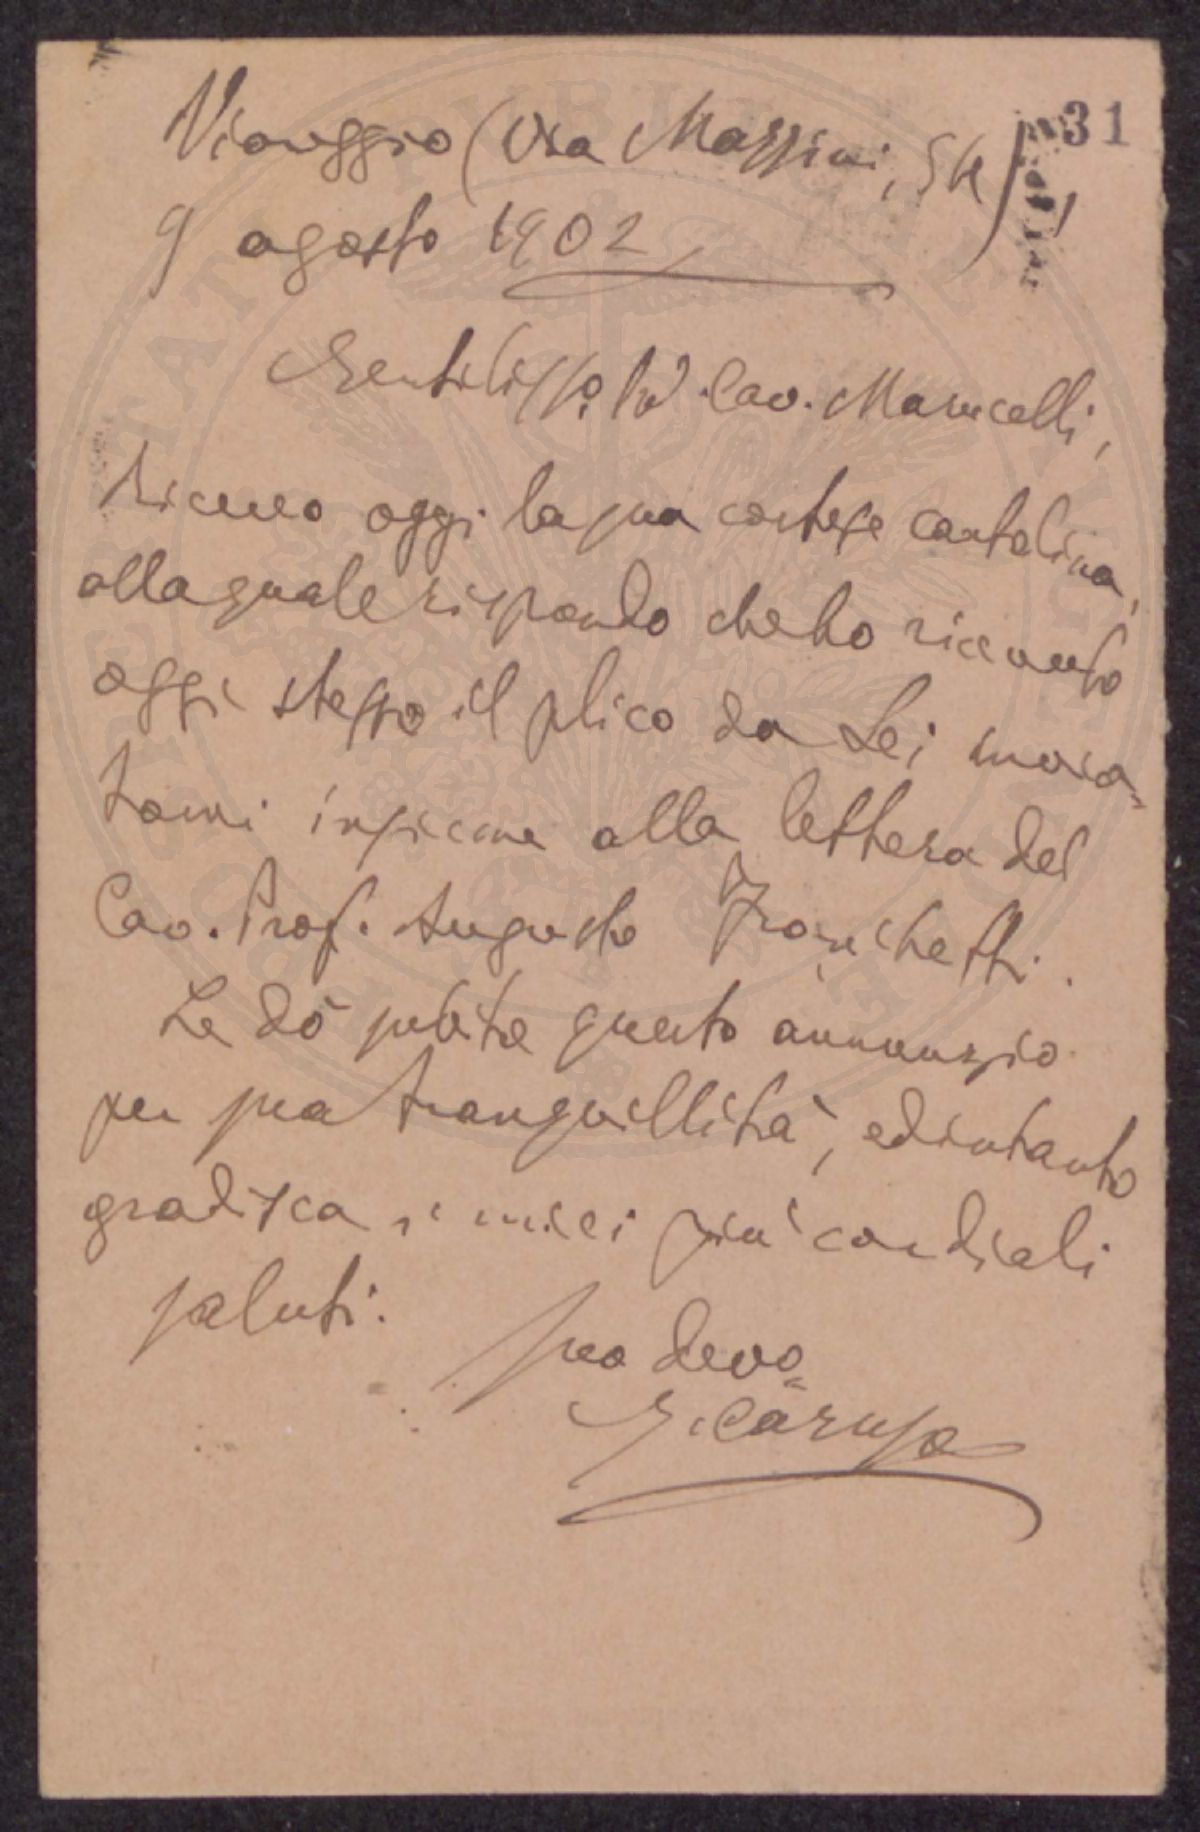 31
Viareggio (Via Mazzini, 54),
9 agosto 1902
Gentiliss.o Sr. Cav. Marucelli,
Ricevo oggi la sua cortese cartolina,
alla quale rispondo che ho ricevuto
oggi stesso il plico da Lei invia=
tomi insieme alla lettera del
Cav. Prof. Augusto Franchetti.
Le dò subito questo annunzio
per sua tranquillità, ed intanto
gradisca i miei più cordiali
saluti.
Suo devo=
G. Caruso